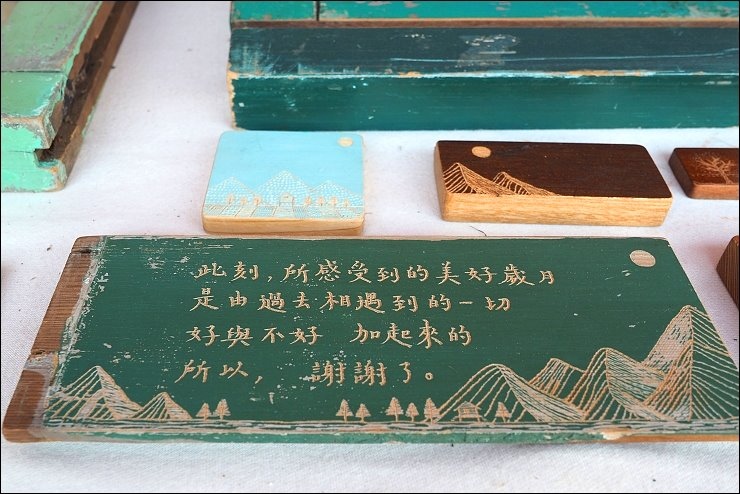 此刻,所感受到的美好歲月
是由過去相遇到的一切
好與不好 加起來的
所以, 謝謝了。